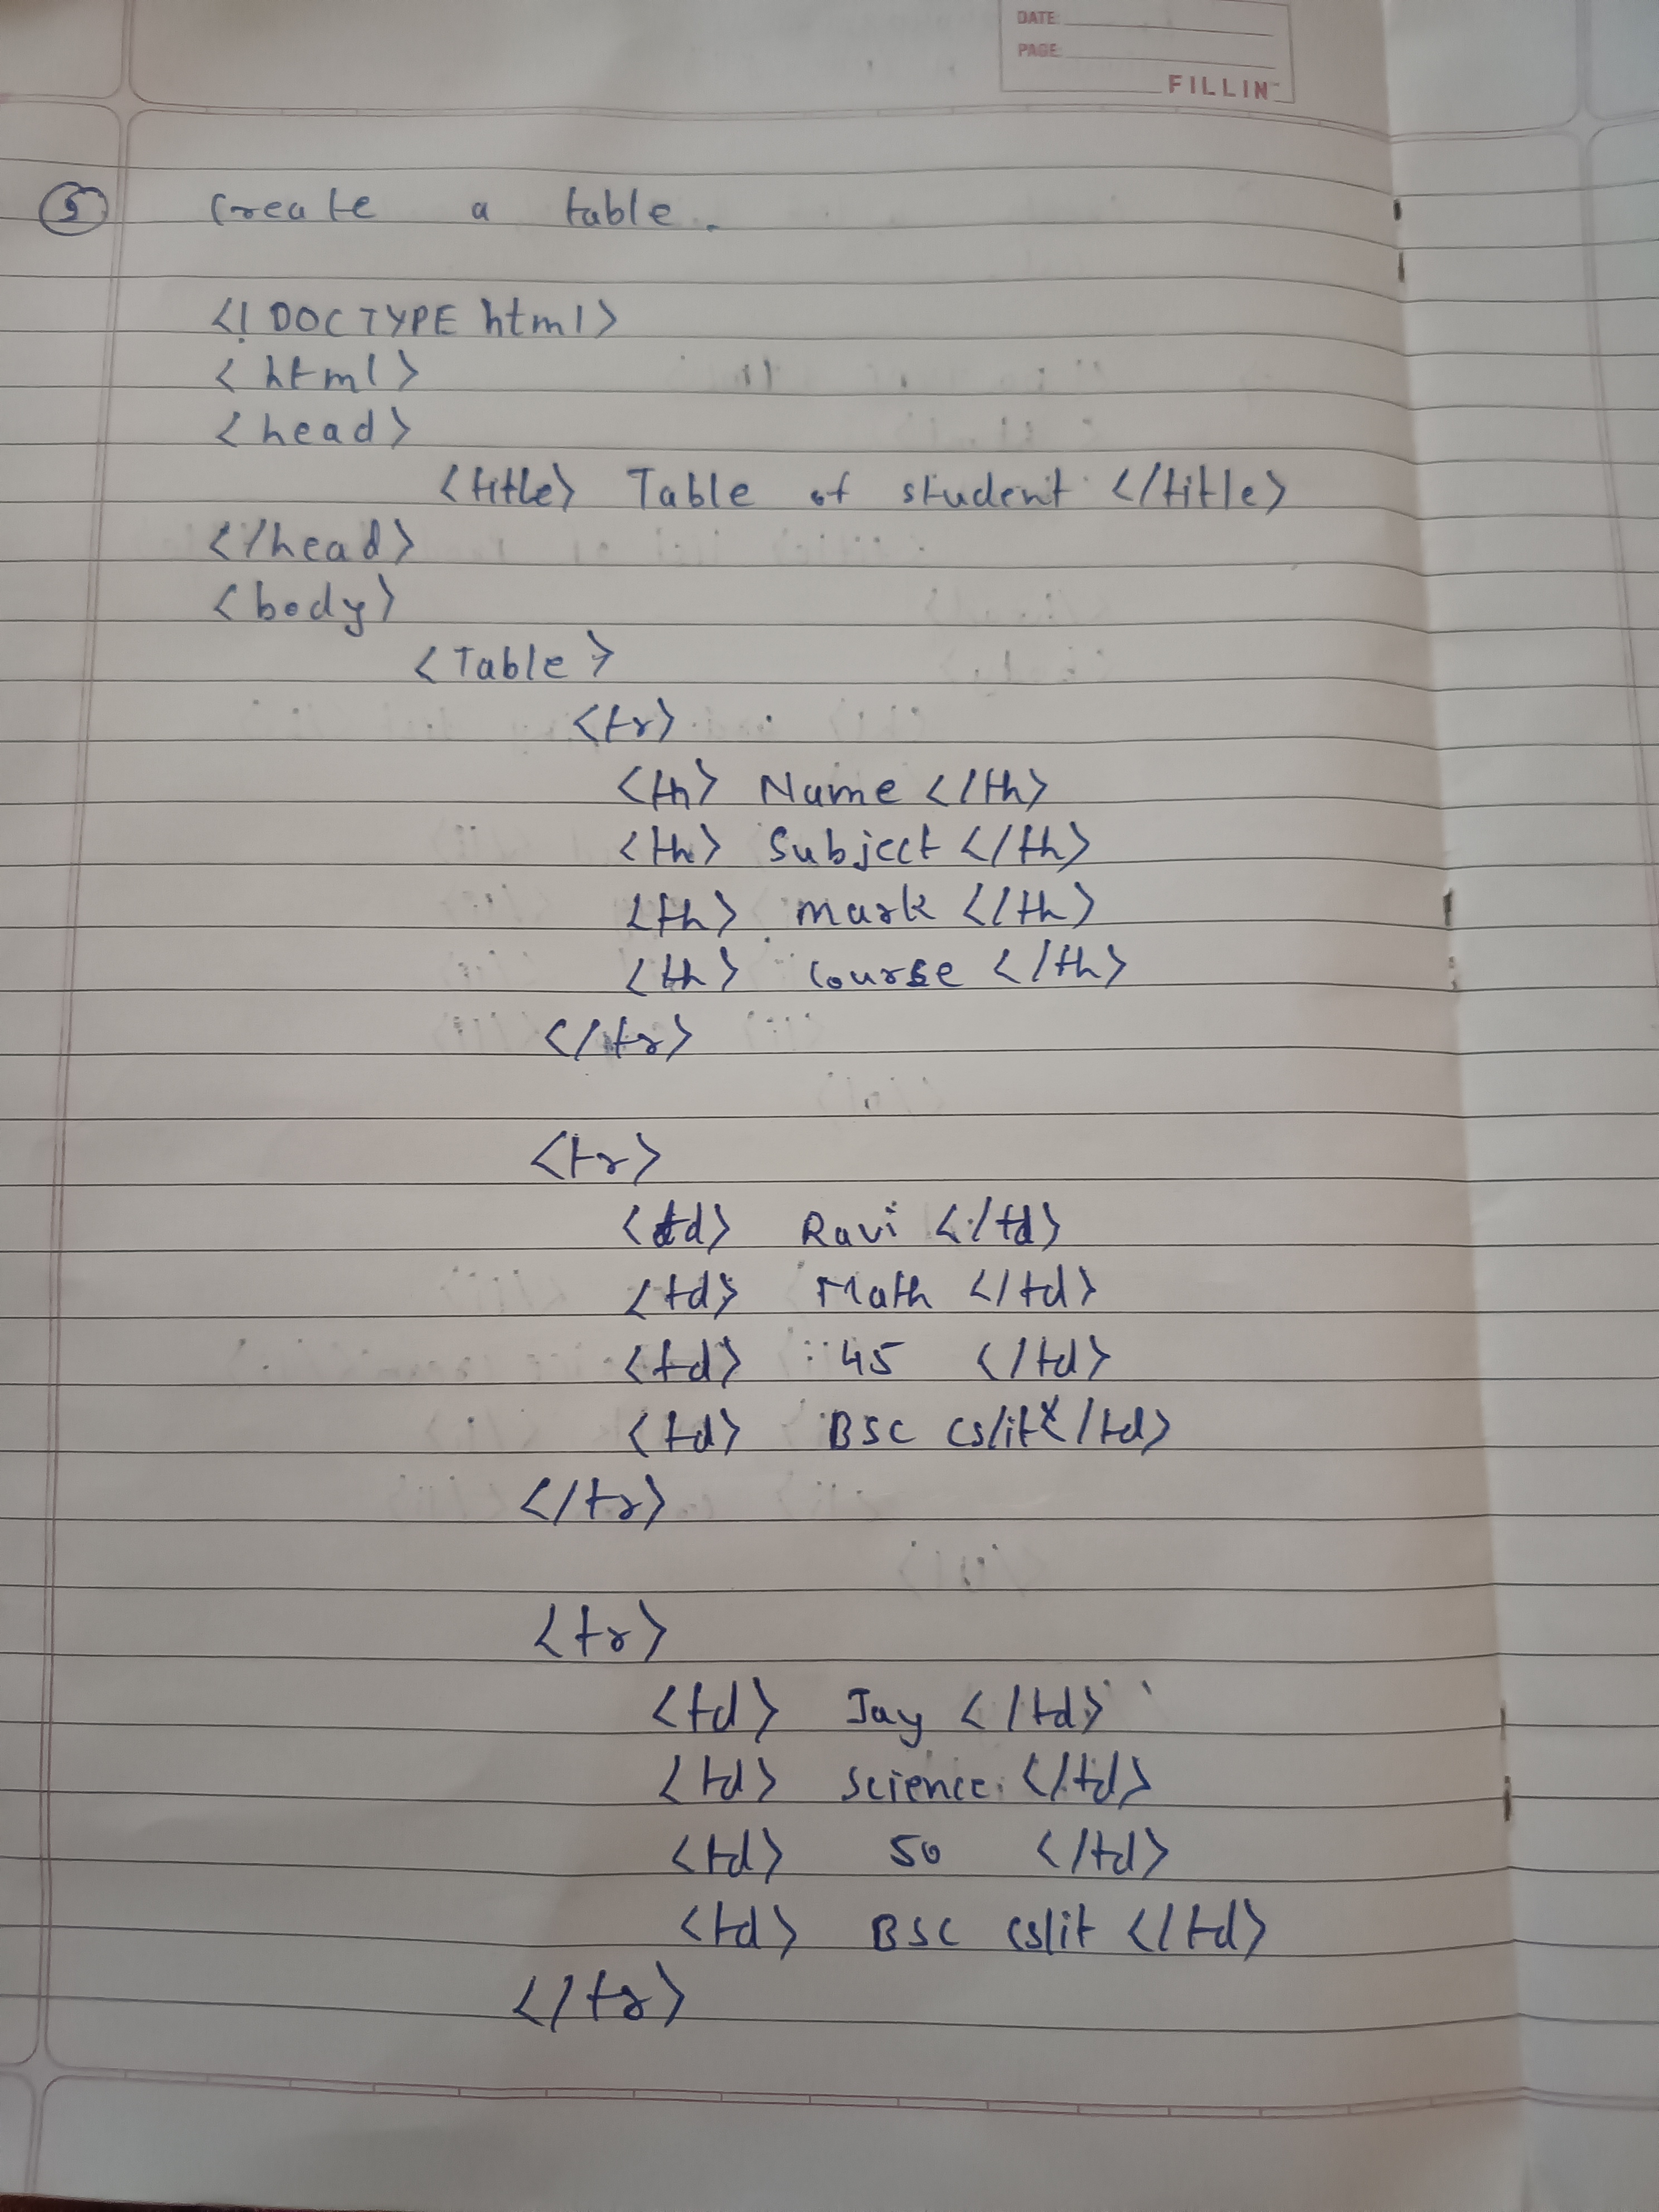 DATE:
PAGE:
FILLIN
5 Create a table.
<!DOCTYPE html>
<html>
<head>
<title> Table of student </title>
</head>
<body>
<Table>
<tr>
<th> Name </th>
<th> Subject </th>
<th> mark </th>
<th> Course </th>
</tr>
<tr>
<td> Ravi </td>
<td> Math </td>
<td> 45 </td>
<td> BSC cs/it </td>
</tr>
<tr>
<td> Jay </td>
<td> Science </td>
<td> 50 </td>
<td> BSC cs/it </td>
</tr>